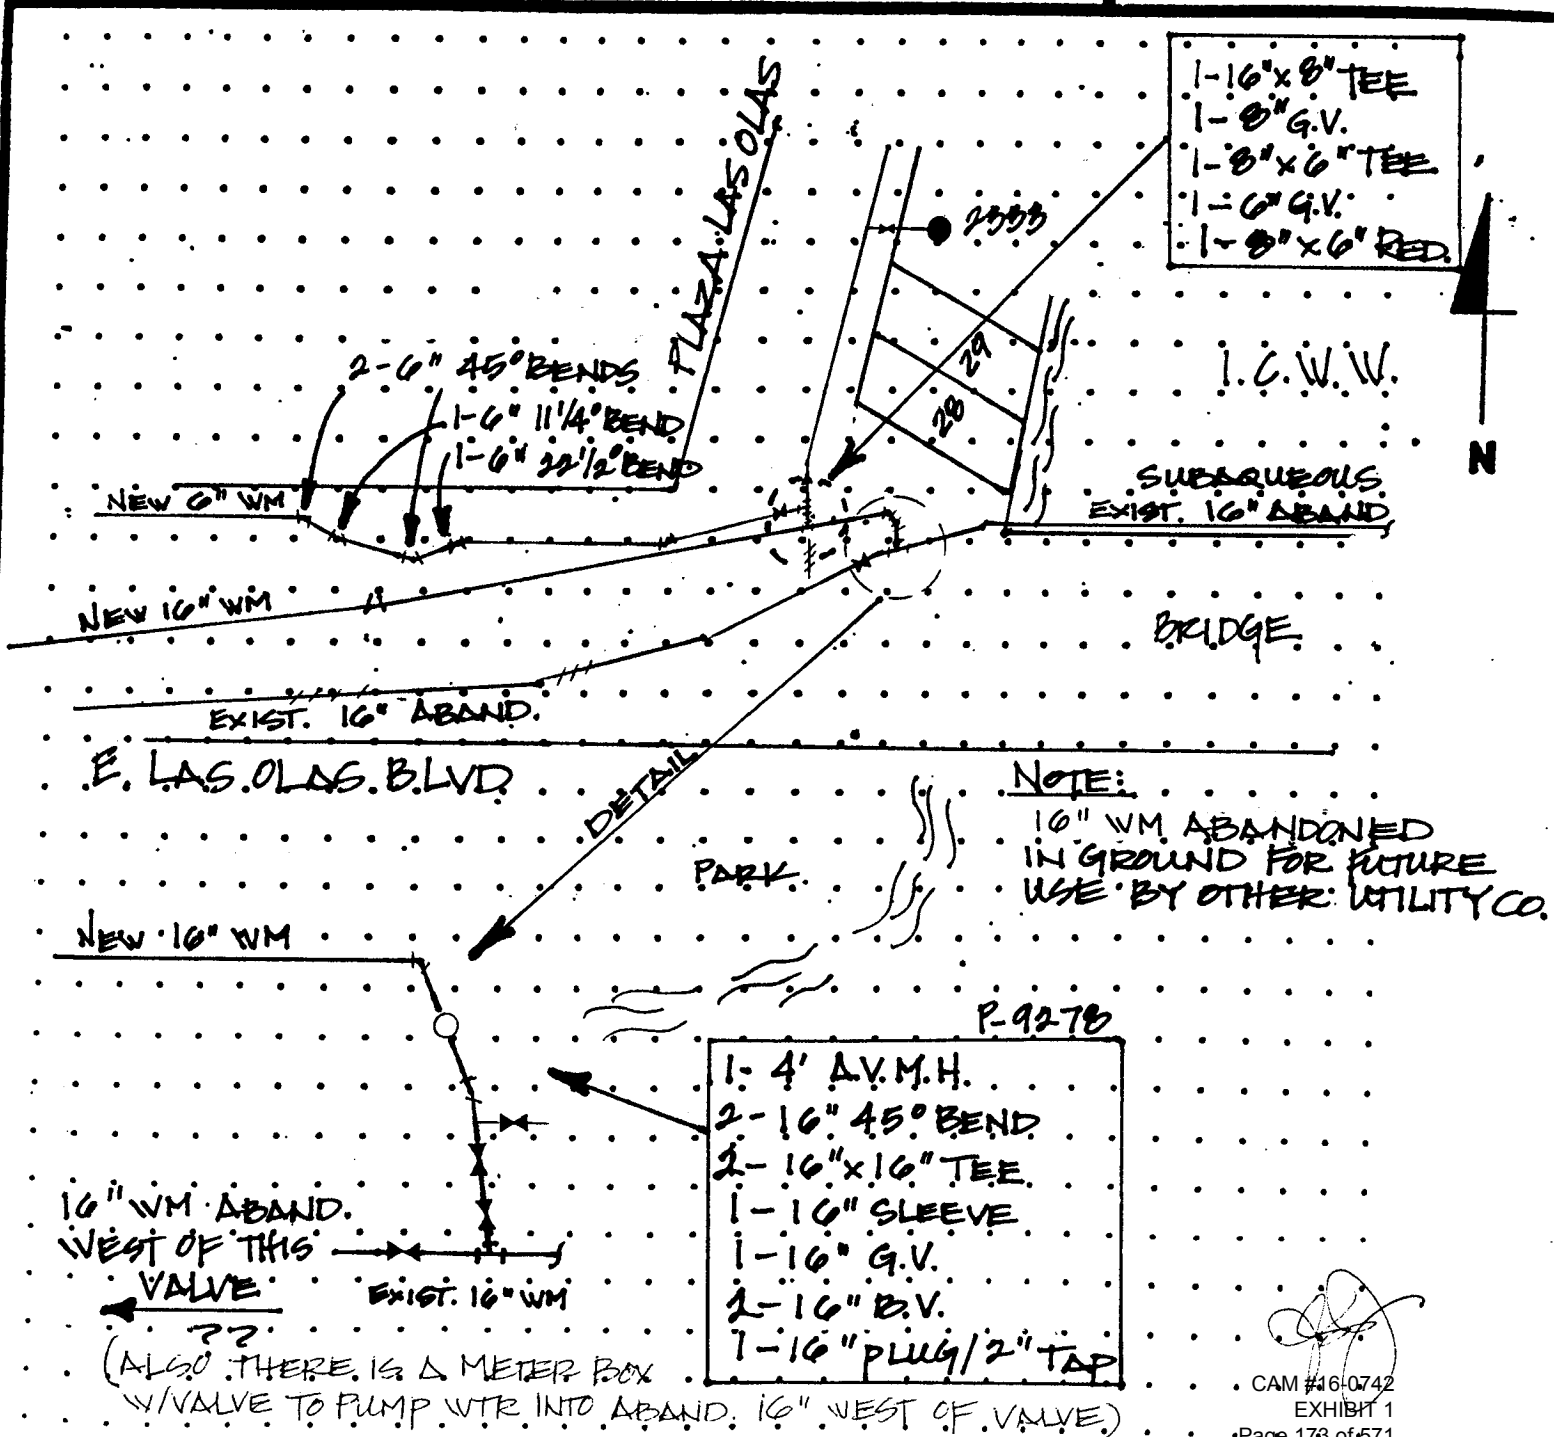 1-16" x 8" TEE
1-8" G.V.
1-8" x 6" TEE
1-6" G.V.
1-8" x 6" RED.
PLAZA LAS OLAS
2333
29
28
I.C.W.W.
N
2-6" 45° BENDS
1-6" 11 1/4° BEND
1-6" 22 1/2° BEND
NEW 6" WM
SUBAQUEOUS
EXIST. 16" ABAND
NEW 16" WM
BRIDGE
EXIST. 16" ABAND.
E. LAS OLAS BLVD
DETAIL
NOTE:
16" WM ABANDONED
IN GROUND FOR FUTURE
USE BY OTHER UTILITY CO.
PARK
NEW 16" WM
P-9278
1- 4' A.V.M.H.
2-16" 45° BEND
2-16" x 16" TEE
1-16" SLEEVE
1-16" G.V.
2-16" B.V.
1-16" PLUG/2" TAP
16" WM ABAND.
WEST OF THIS
VALVE
??
EXIST. 16" WM
(ALSO THERE IS A METER BOX
W/VALVE TO PUMP WTR INTO ABAND. 16" WEST OF VALVE)
CAM #16-0742
EXHIBIT 1
Page 173 of 571